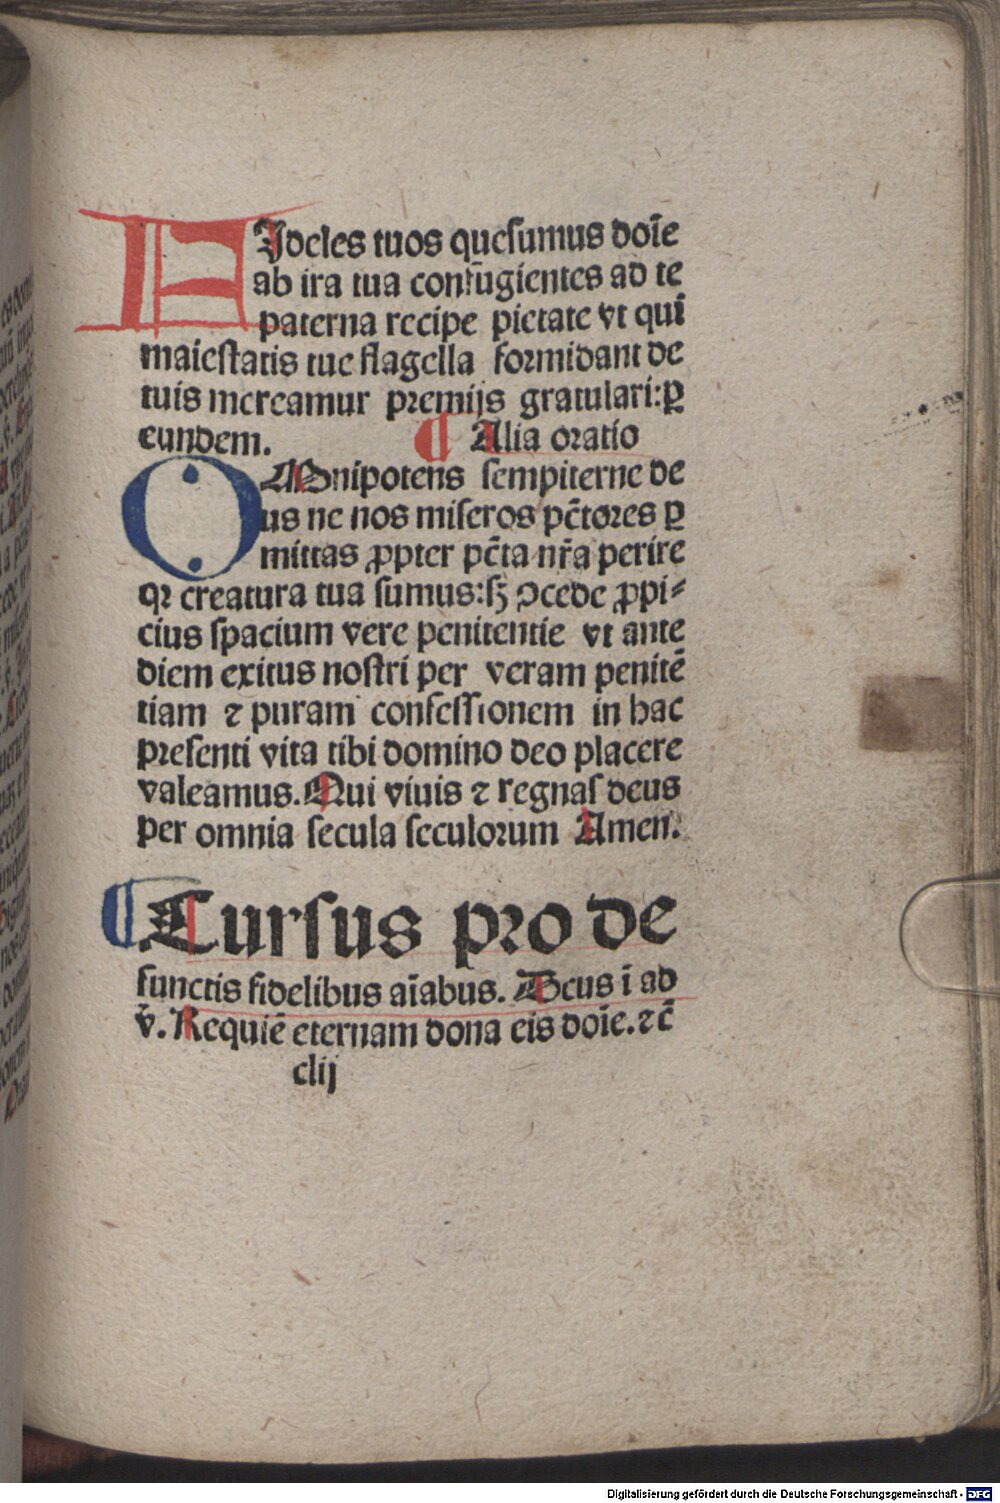 FIdeles tuos quesumus doīe
ab ira tua confugientes ad te
paterna recipe pietate vt qui
maiestatis tue flagella formidant de
tuis mereamur premijs gratulari:ꝑ
eundem. ¶ Alia oratio
OMnipotens sempiterne de
us ne nos miseros pc̄tores ꝑ
mittas ꝓpter pc̄ta nr̄a perire
qꝛ creatura tua sumus:sꝫ ꝯcede ꝓpi⸗
cius spacium vere penitentie vt ante
diem exitus nostri per veram penitē
tiam ⁊ puram confessionem in hac
presenti vita tibi domino deo placere
valeamus. Qui viuis ⁊ regnas deus
per omnia secula seculorum Amen.
¶ Cursus pro de
functis fidelibus aīabus. Deus ī ad
v̄. Requiē eternam dona eis doīe. ⁊c̄
clij
Digitalisierung gefördert durch die Deutsche Forschungsgemeinschaft - DFG